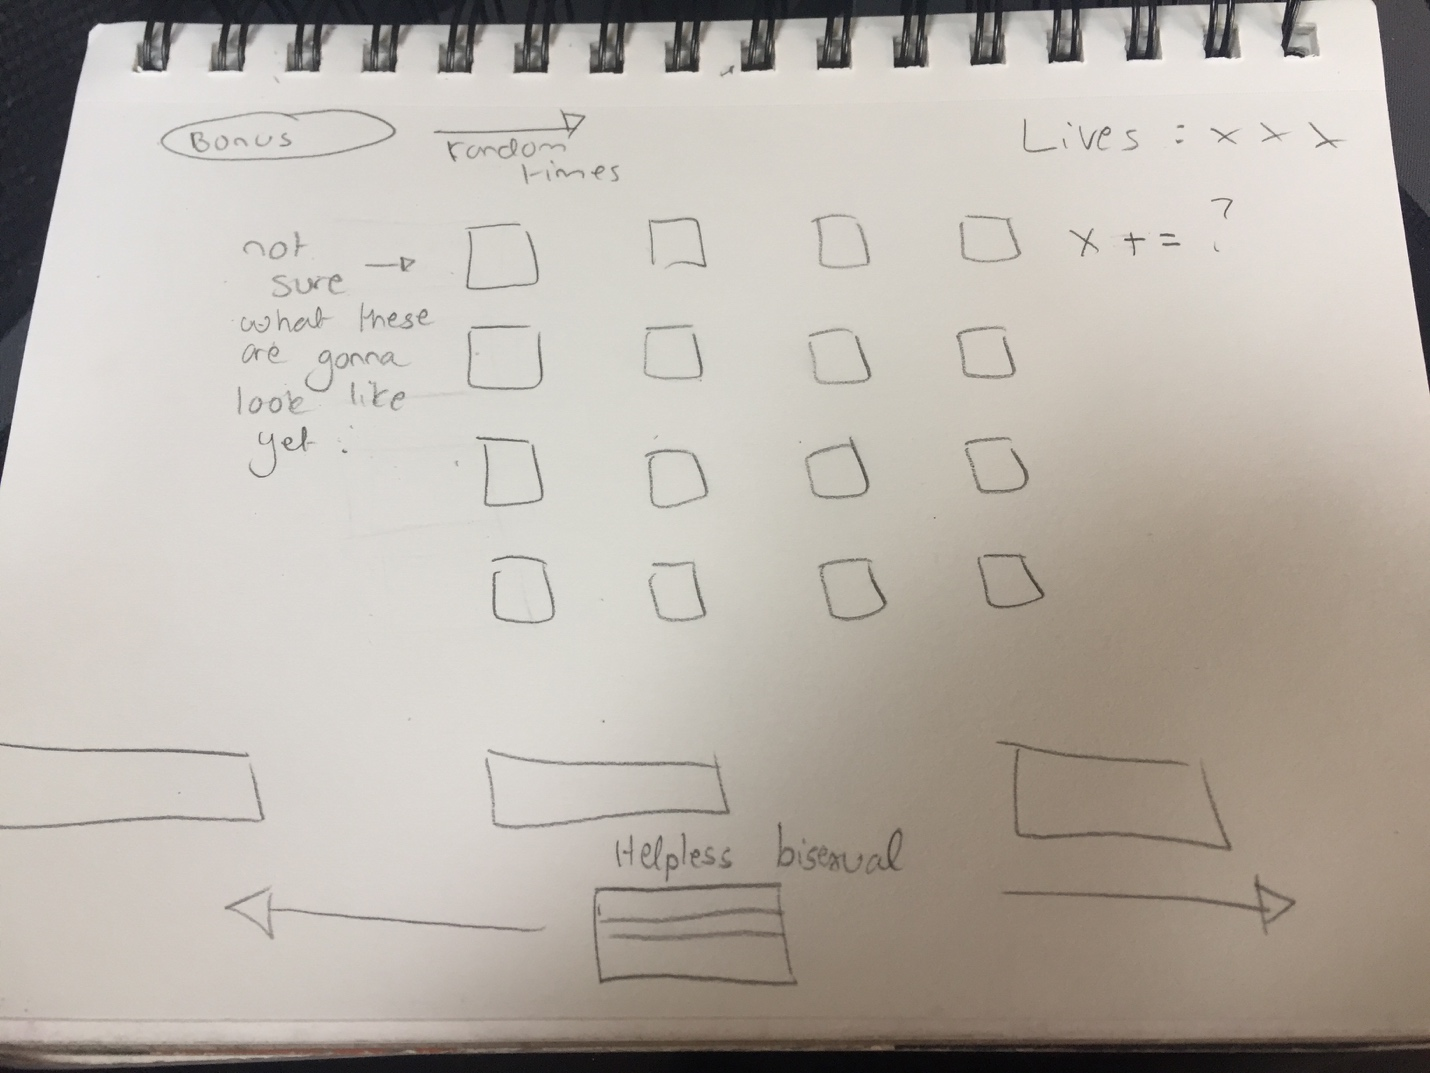 Bonus
random
times
Lives : x x x
x + = ?
not
sure
what these
are gonna
look like
yet :
Helpless bisexual